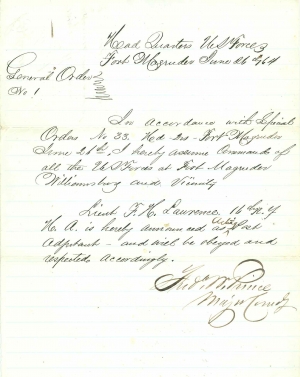 Head Quarters U S Forces
Fort Magruder June 26th/64
General Orders
No. 1
In accordance with Special
Orders No 33. Hd Qrs Fort Magruder
June 21st, I hereby assume command of
all the U S Forces at Fort Magruder
Williamsburg and Vicinity
Lieut. F. H. Lawrence 16th N.Y
H. A. is hereby announced as Acting Post
Adjutant - and will be obeyed and
respected accordingly.
Prince
Major Comdg